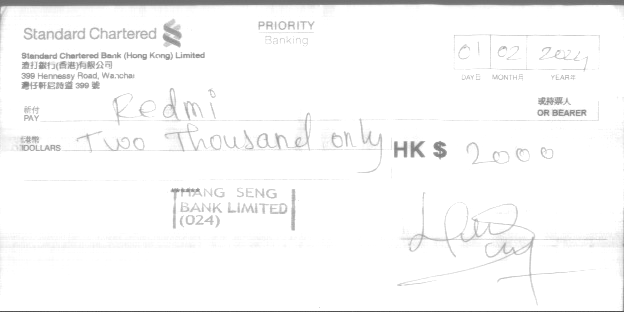 Standard Chartered
PRIORITY
Banking
Standard Chartered Bank (Hong Kong) Limited
渣打銀行(香港)有限公司
399 Hennessy Road, Wanchai
灣仔軒尼詩道 399 號
01 02 2024
DATE MONTH月 YEAR年
祈付
PAY Redmi
或持票人
OR BEARER
港幣
DOLLARS Two Thousand only HK $ 2000
HANG SENG
BANK LIMITED
(024)